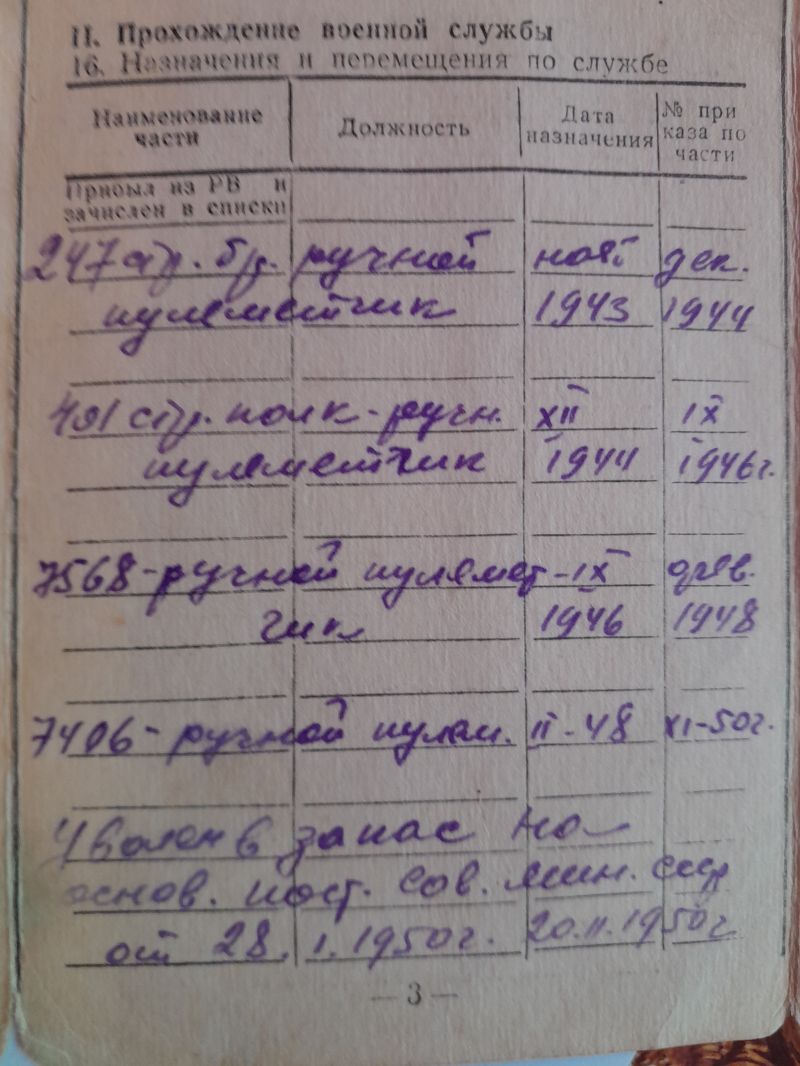 II. Прохождение военной службы
16. Назначения и перемещения по службе
Наименование части Должность Дата назначения № при каза по части
Прибыл из РВ и
зачислен в списки
247 стр. бр. ручной нояб. дек.
пулеметчик 1943 1944
491 стр. полк - ручн. XII IX
пулеметчик 1944 1946г.
7568 - ручной пулемет - IX фев.
чик 1946 1948
7406 - ручной пулем. II - 48 XI - 50г.
Уволен в запас на
основ. пост. Сов. мин. ссср
от 28. I. 1950г. 20.11.1950г
— 3 —